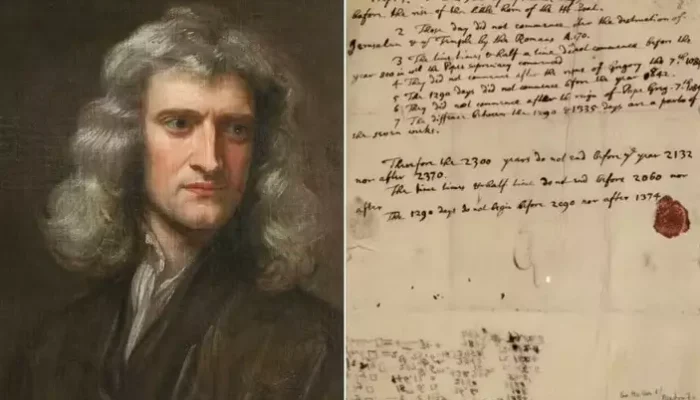 before the rise of the little horn of the He Goat.
2 Those day did not commence after the destruction of
Jerusalem & ye Temple by the Romans A. 70.
3 The time times & half a time did not commence before the
year 800 in wch the Popes supremacy commenced
4 They did not commence after the reigne of Gregory the 7th. 1084
5 The 1290 days did not commence before the year 842.
6 They did not commence after the reigne of Pope Greg. 7th. 1084
7 The diffence between the 1290 & 1335 days are a parts of
the seven weeks.
Therefore the 2300 years do not end before ye year 2132
nor after 2370.
The time times & half time do not end before 2060 nor
after
The 1290 days do not begin before 2090 nor after 1374